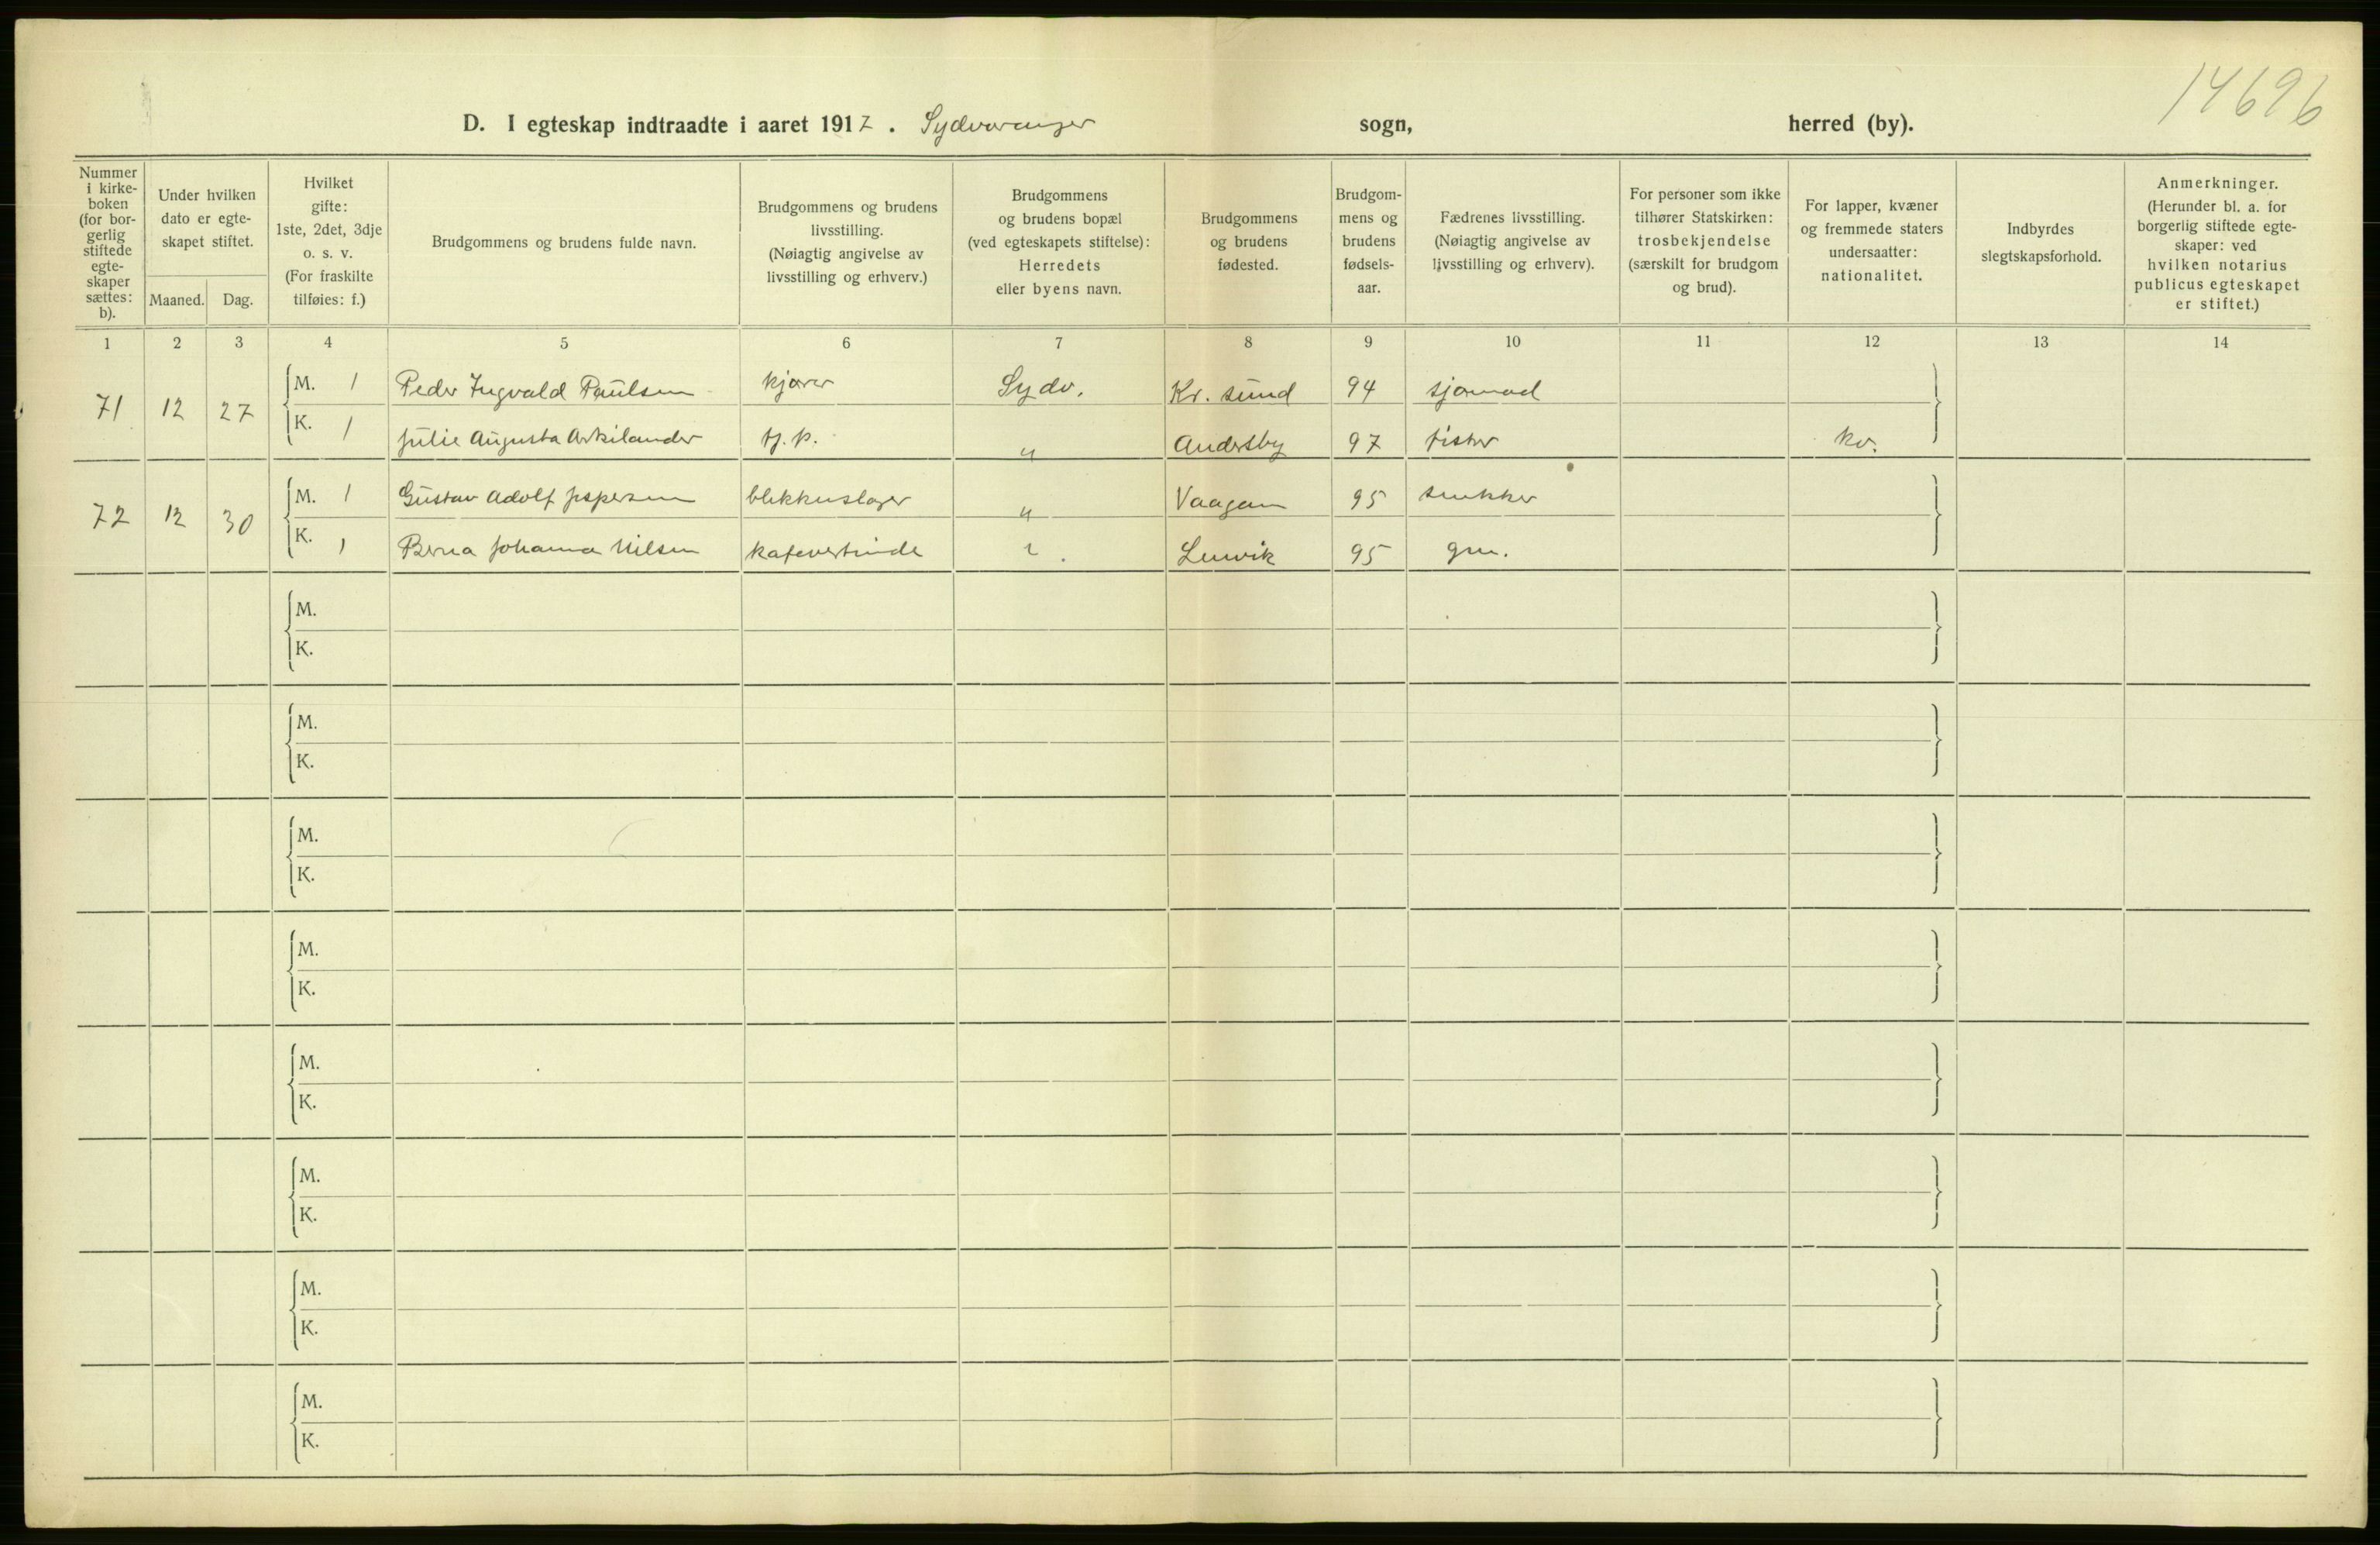 14696
D. I egteskap indtraadte i aaret 1917. Sydvaranger sogn, herred (by).
Nummer i kirkeboken (for borgerlig stiftede egteskaper sættes: b).
Under hvilken dato er egteskapet stiftet.
Maaned. Dag.
Hvilket gifte: 1ste, 2det, 3dje o. s. v. (For fraskilte tilføies: f.)
Brudgommens og brudens fulde navn.
Brudgommens og brudens livsstilling. (Nøiagtig angivelse av livsstilling og erhverv.)
Brudgommens og brudens bopæl (ved egteskapets stiftelse): Herredets eller byens navn.
Brudgommens og brudens fødested.
Brudgommens og brudens fødselsaar.
Fædrenes livsstilling. (Nøiagtig angivelse av livsstilling og erhverv).
For personer som ikke tilhører Statskirken: trosbekjendelse (særskilt for brudgom og brud).
For lapper, kvæner og fremmede staters undersaatter: nationalitet.
Indbyrdes slegtskapsforhold.
Anmerkninger. (Herunder bl. a. for borgerlig stiftede egteskaper: ved hvilken notarius publicus egteskapet er stiftet.)
1 2 3 4 5 6 7 8 9 10 11 12 13 14
71 12 27 M. 1 Peder Ingvald Paulsen kjører Sydv. Kr. sund 94 sjømand
K. 1 Julie Augusta Arkilander tj. p. " Andersby 97 fisker kv.
72 12 30 M. 1 Gustav Adolf Jespersen blikkenslager " Vaagan 95 snekker
K. 1 Berna Johanna Nilsen kafevertinde " Lenvik 95 grn.
M.
K.
M.
K.
M.
K.
M.
K.
M.
K.
M.
K.
M.
K.
M.
K.